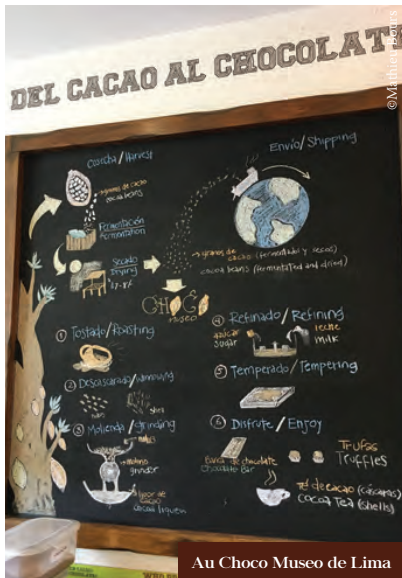 DEL CACAO AL CHOCOLAT
©Mathieu Bours
Cosecha/Harvest
granos de cacao
cocoa beans
Fermentación
Fermentation
Secado
Drying
Envío/Shipping
granos de cacao (fermentado y secos)
cocoa beans (fermentated and dried)
CHOCO
museo
① Tostado/Roasting
② Descascarado/Winnowing
nibs
shell
③ Molienda/grinding
nibs
molino
grinder
licor de cacao
cocoa liquor
④ Refinado/Refining
azúcar
sugar
leche
milk
⑤ Temperado/Tempering
⑥ Disfrute/Enjoy
Barra de chocolate
Chocolate Bar
Trufas
Truffles
Té de cacao (cáscaras)
cocoa Tea (shells)
Au Choco Museo de Lima